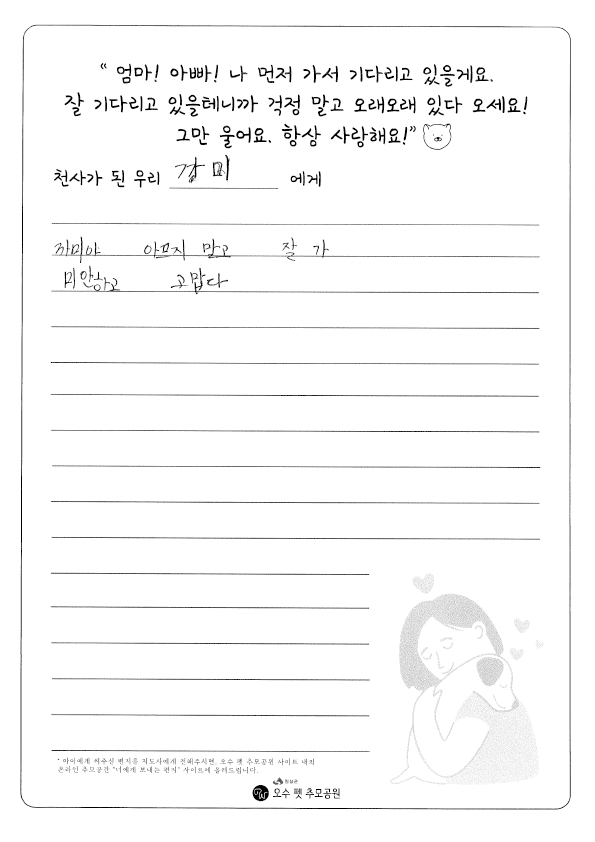 “ 엄마! 아빠! 나 먼저 가서 기다리고 있을게요.
잘 기다리고 있을테니까 걱정 말고 오래오래 있다 오세요!
그만 울어요. 항상 사랑해요!”
천사가 된 우리 깜미 에게
까미야 아프지 말고 잘 가
미안하고 고맙다
* 아이에게 써주신 편지를 지도사에게 전해주시면, 오수 펫 추모공원 사이트 내의
온라인 추모공간 "너에게 보내는 편지" 사이트에 올려드립니다.
임실군
오수 펫 추모공원